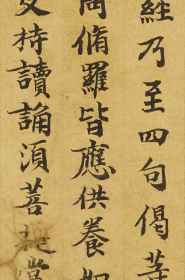 經乃至四句偈等
阿脩羅皆應供養如
持讀誦湏菩提當